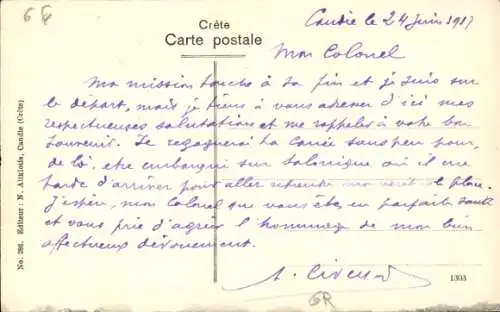 6
Crète
Carte postale
Candie le 24 Juin 1917
Mon Colonel
Ma mission touche à sa fin et je suis sur
le départ, mais je tiens à vous adresser d'ici mes
respectueuses salutations et me rappeler à votre bon
souvenir. Je regagnerai la Canée sans peu pour,
de là, etre embarqué sur Salonique où il me
tarde d'arriver pour aller
J'espère, mon Colonel que vous êtes en parfaite santé
et vous prie d'agréer l'hommage de mon bien
affectueux dévouement.
GR
1303
No. 286. Editeur: N. Alikiotis, Candie (Crète)